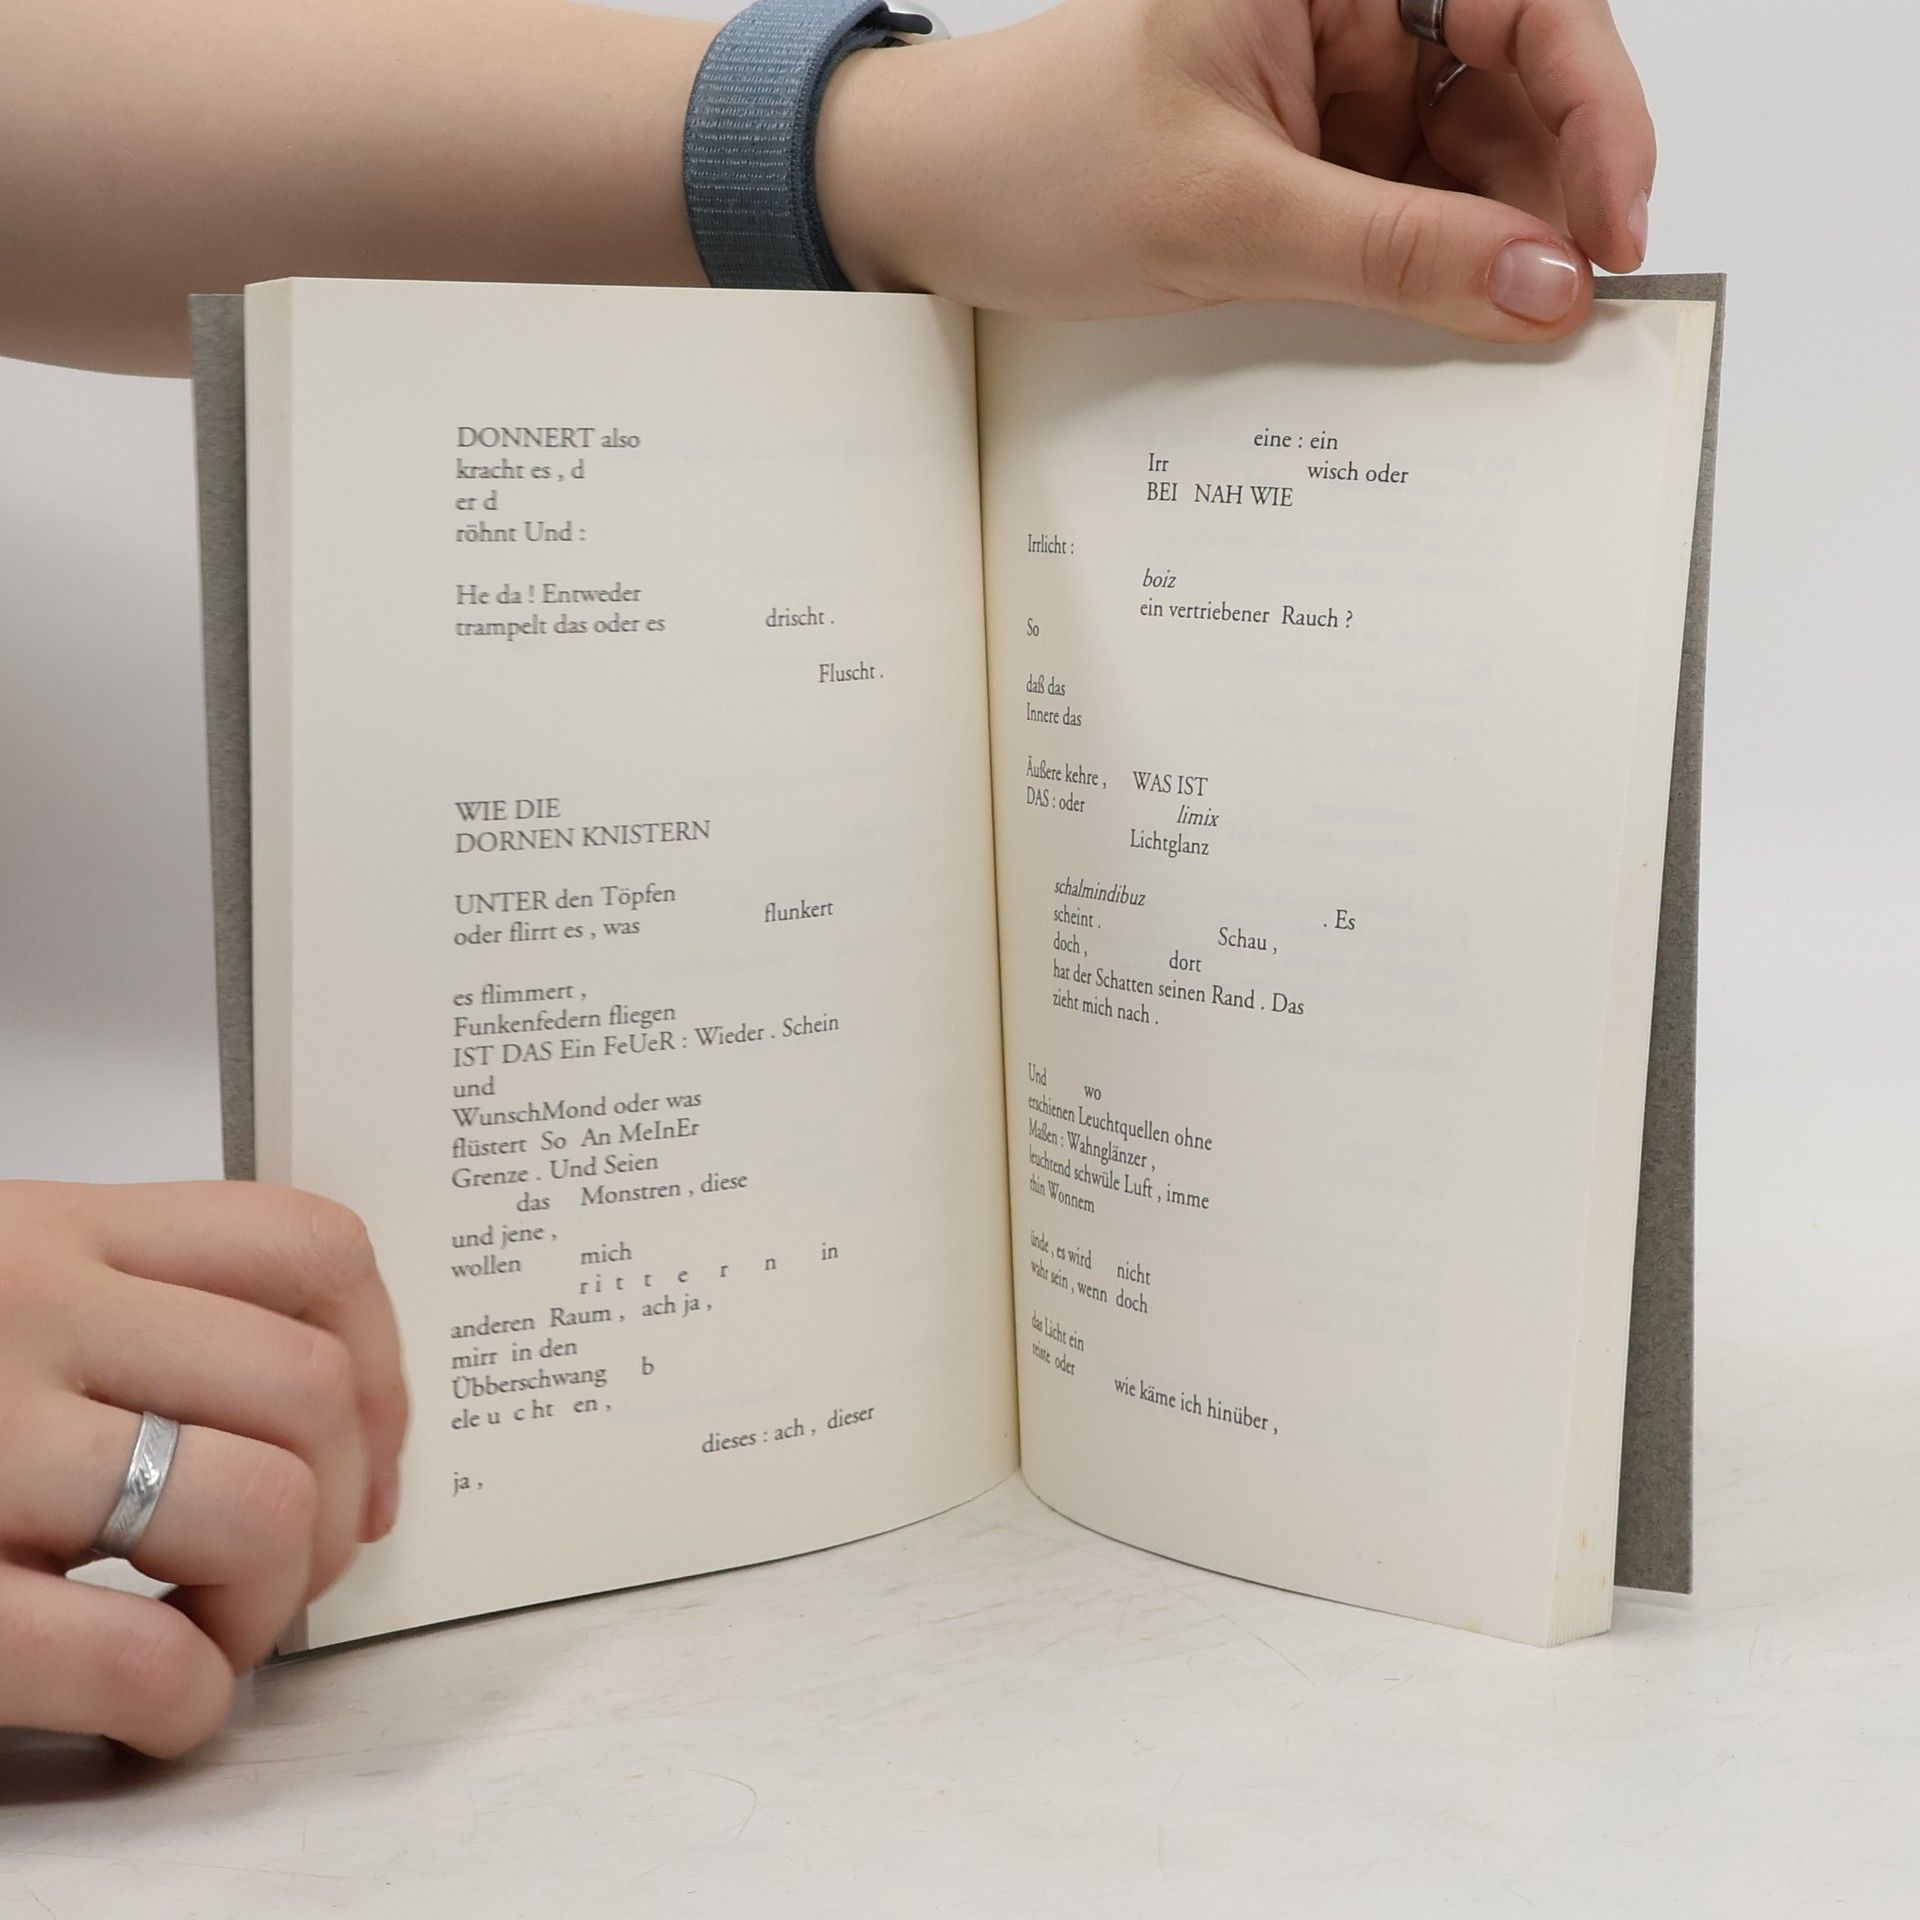 DONNERT also
kracht es , d
er d
röhnt Und :
He da ! Entweder
trampelt das oder es drischt .
Fluscht .
WIE DIE
DORNEN KNISTERN
UNTER den Töpfen
oder flirrt es , was flunkert
es flimmert ,
Funkenfedern fliegen
IST DAS Ein FeUeR : Wieder . Schein
und
WunschMond oder was
flüstert So An MeInEr
Grenze . Und Seien
das Monstren , diese
und jene ,
wollen mich
r i t t e r n in
anderen Raum , ach ja ,
mirr in den
Übberschwang b
ele u c ht en ,
dieses : ach , dieser
ja ,
eine : ein
Irr wisch oder
BEI NAH WIE
Irrlicht :
boiz
ein vertriebener Rauch ?
So
daß das
Innere das
Äußere kehre , WAS IST
DAS : oder limix
Lichtglanz
schalmindibuz
. Es
scheint . Schau ,
doch , dort
hat der Schatten seinen Rand . Das
zieht mich nach .
Und wo
erschienen Leuchtquellen ohne
Maßen : Wahnglänzer ,
leuchtend schwüle Luft , imme
rhin Wonnem
ünde , es wird nicht
wahr sein , wenn doch
das Licht ein
reiste oder
wie käme ich hinüber ,